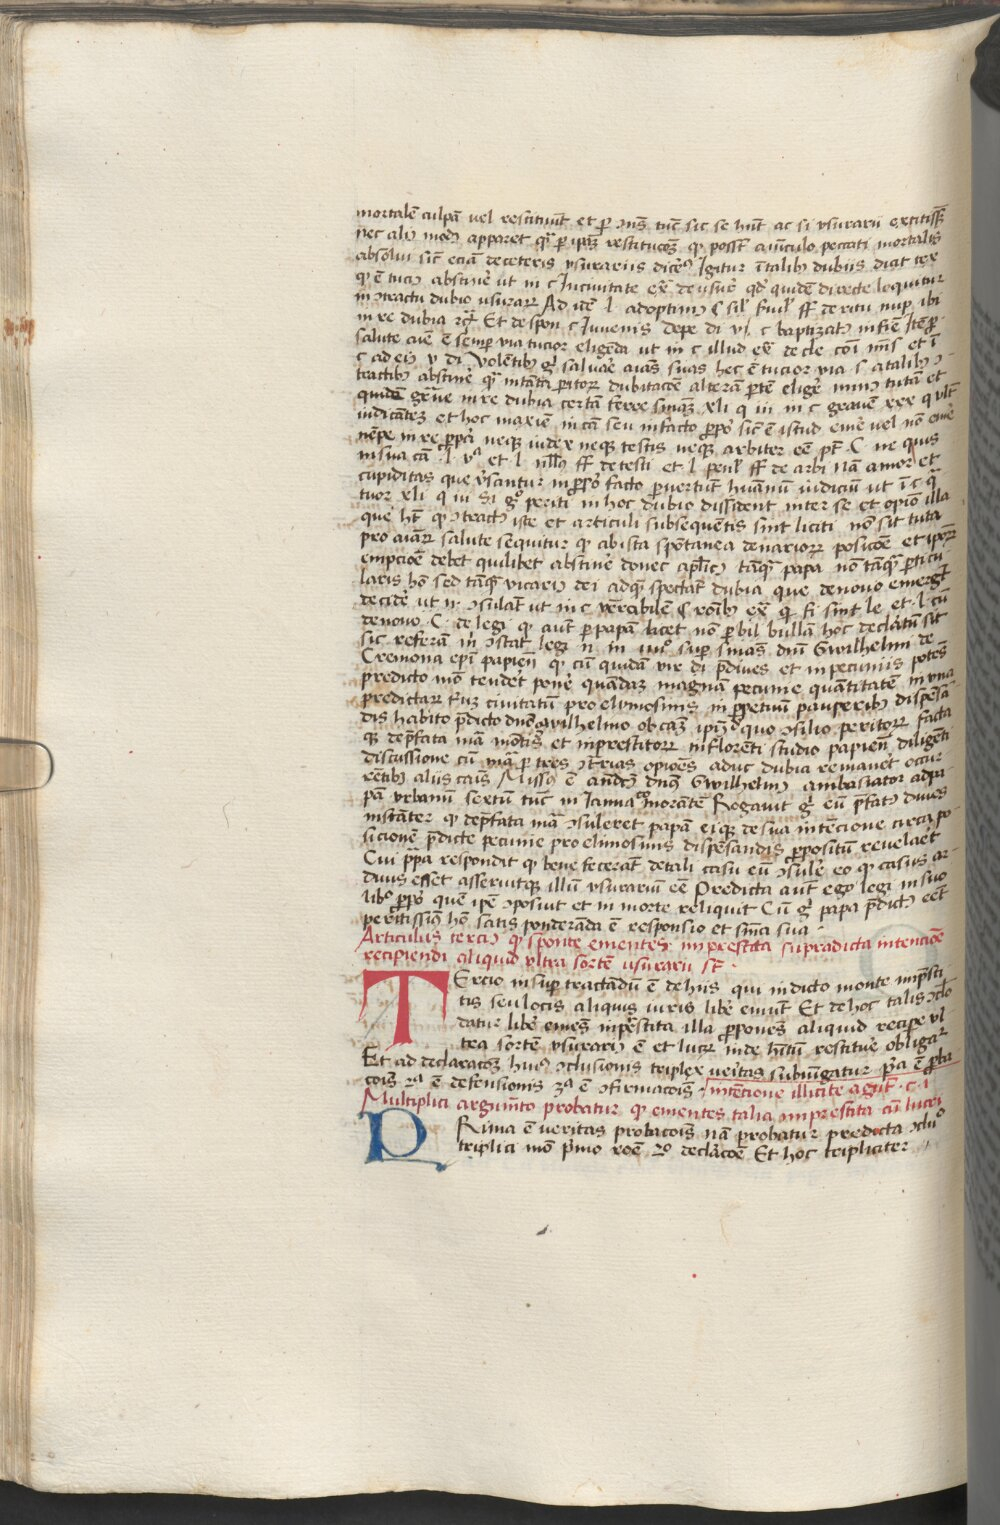 mortalē culpā vel restituūt et per ↄn̄s tūc sic se hn̄t ac si usurarii extitissēt
nec aliꝰ modꝰ apparet qͣ per ipā restitucōꝫ qꝫ possīt a vīculo peccati mortalis
absolvi sic̄ eciā de ceteris usurariis dicēs Igitur ī talibꝰ dubiis dicit tex
qꝫ ē tuciꝰ abstinēr ut in c In civitate ex̄ de usur̄ qd̓ quidē directe loquitur
in ↄtractu dubio usurarꝝ Ad idē l adoptiuꝰ § sil̓ ff de ritu nup ibi
in re dubia Et de spon c Iuvenis de pe di vii c baptizatꝰ in fine Itē pro
salute aīe ē semper via tucior eligenda ut in c illud ex̄ de cle et ī
c ad eiꝰ v di Volentibꝰ gͦ salvare aīas suas hec ē tucior via s a talibꝰ ↄ-
tractibꝰ abstinēr qͣ in tāta peritorꝝ dubitacōe alterā partē eligē minꝰ tutā et
quidē grave in re dubia certā ferre sniaꝫ xi q iii in c grave xxx q ult
iudicātes et hoc maxīe in cā seu in facto propō sic̄ ē istud emē vel nō emē
nēpe in re propria neqꝫ iudex neqꝫ testis neqꝫ arbiter eē pt̄ C ne quis
in sua cā l vͣ et l nullꝰ ff de testi et l penul̓ ff de arbi Nā amor et
cupiditas que v̓santur in propō facto pervertūt humanū iudiciū ut ī c qͣ
tuor xi q iii Si gͦ periti in hoc dubio dissident inter se et opīo illa
que hꝫ qꝫ ↄtractꝰ iste et articuli subsequentis sint liciti nō sit tuta
pro aīarꝫ salute sequitur qꝫ ab ista spōtanea denariorꝝ posicōe et ipōꝝ
empcōe debet quilibet abstinēr donec aplicꝰ tāqͣ papa nō tāqͣ particu-
laris hō sed tāqͣ vicariꝰ dei ad quē spectāt dubia que de novo emergūt
decidēr ut n ↄsulat ut in c venerabilē § ex̄ qui fi sint le et l cū
de novo C de legi qꝫ aūt per papā licet nō per bullā hoc declaratū sit
sic referā n̄ ↄstat legi n in sup smas dnī Gwilhelmi de
Cremona epī papien̄ qꝫ cū quidā vir di prēdives et in pecuniis potēs
predicto mō tenderet ponēr quādaꝫ magnā pecunie quātitatē in una
predictarꝝ triū civitatū pro elimosinis in perpetuū pauperibꝰ dispensā
dis habito prēdicto dnō Gwilhelmo ob cāꝫ ipīꝰ quo ↄsilio peritorꝝ facta
qꝫ de prēfata mā mōtis et in prestitorꝝ in florenti studio papien̄ diligēti
discussione cū mā per tres ↄtrias opiōēs aduc dubia remanēt occur
rētibꝰ aliis cāis Missꝰ ē eūdē dnūs Gwilhelmꝰ ambasiator ad pa-
pā Urbanū sextū tūc in Ianua morantē Rogavit gͦ eū prēfatꝰ dives
instāter qꝫ de prēfata mā ↄsuleret papā eiqꝫ de sua intencione circa po
sicionē prēdicte pecunie pro elimosinis dispensandis propositū revelaret
Cui papa respondit qꝫ bene fecerat de tali casu eū ↄsulēr eo qꝫ casus ar-
duus esset asseruitqꝫ illū usurariū eē Predicta aūt ego legi in suo
libͦ propō quē ipē ↄposuit et in morte reliquit Cū gͦ papa prēdictꝰ eēt
peritissimꝰ hō satis ponderanda ē responsio et snīa sua ·
Articulus terciꝰ qꝫ sponte ementes imprestita supradicta intencōe
recipiendi aliquid ultra sortē usurarii st̄ ·
TErcio insup tractandū ē de hiis qui in dicto monte imp̄sti
tis seu locis aliquis iuris libēr emūt Et de hoc talis ↄclō
datur libēr emēs imprestita illa proponēs aliquid recipēr ul-
tra sortē usurariꝰ ē et lucrꝫ inde hītū restituēr obligaͬ
Et ad declaracōꝫ huiꝰ ↄclusionis triplex veritas subiūgatur p̓a ē proba
cōis 2ͣ ē defensionis 3ͣ ē ↄfirmacōis · intēcione illicite agūt · c i
Multiplici argumēto probatur qꝫ ementes talia imprestita cū lucri
PRima ē veritas probacōis nā probatur predicta ↄcluͦ
triplici mō primo rōē 2ͦ declaracōe Et hoc tripliciter ·